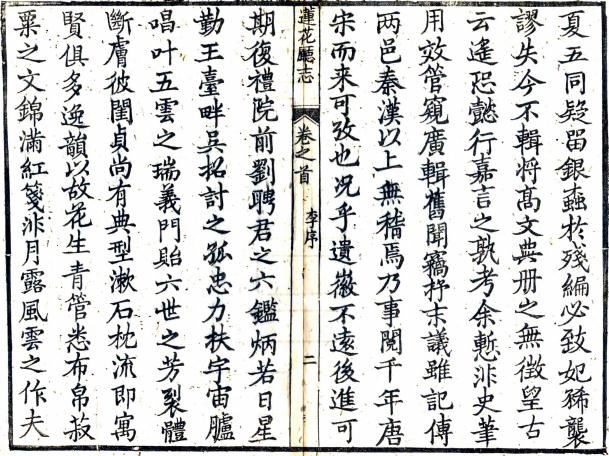 夏五同疑畱銀蟲於殘編必致妃豨襲
謬失今不輯將髙文典册之無徴望古
云遙恐懿行嘉言之孰考余慙非史筆
用效管窺廣輯舊聞竊抒末議雖記傳
两邑秦漢以上無稽焉乃事閱千年唐
宋而来可攷也况乎遺徽不逺後進可
蓮花廳志
卷之首
李序
二
期復禮院前劉聘君之六鑑炳若日星
勤王臺畔吳招討之孤忠力扶宇宙臚
唱叶五雲之瑞義門貽六世之芳裂體
斷膚彼閨貞尚有典型漱石枕流即寓
賢俱多逸韻以故花生青管悉布帛菽
粟之文錦滿紅箋非月露風雲之作夫